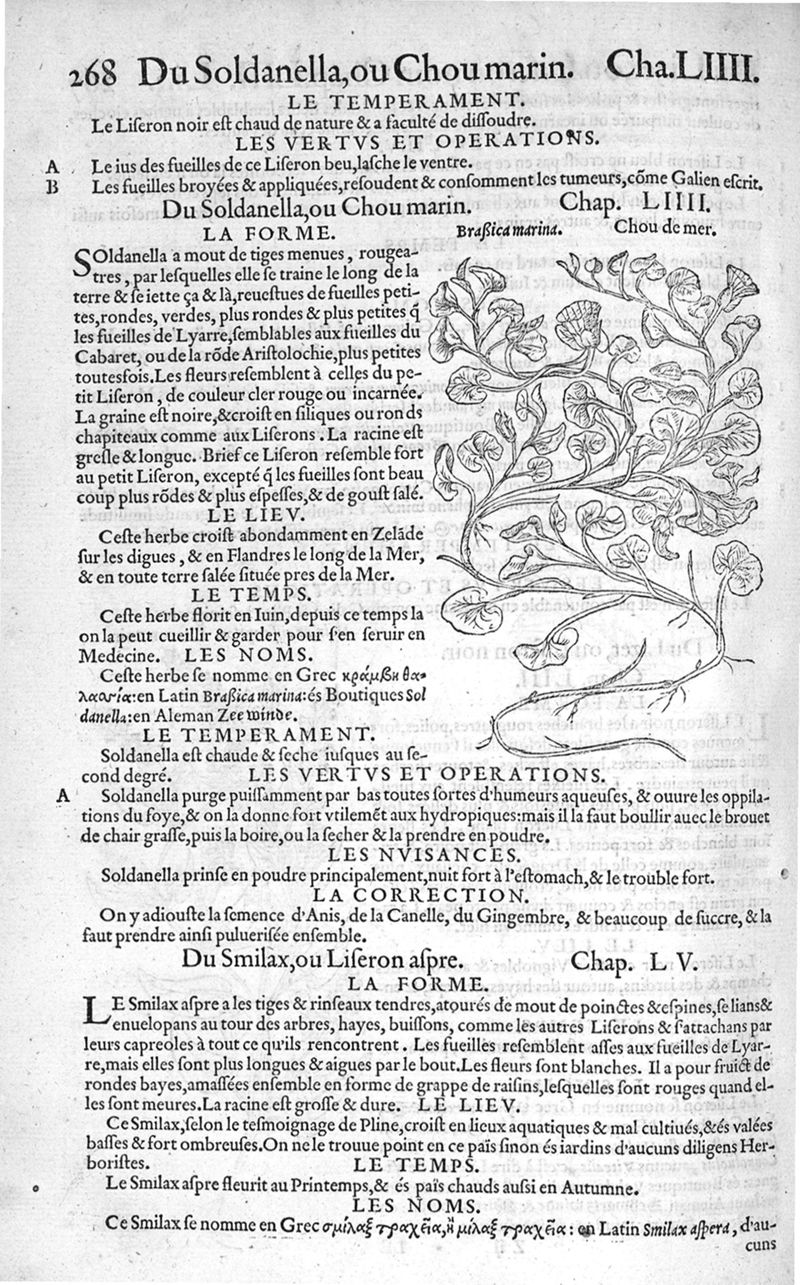 268 Du Soldanella, ou Chou marin. Cha. LIIII.
LE TEMPERAMENT.
Le Liſeron noir eſt chaud de nature & a faculté de diſſoudre.
LES VERTVS ET OPERATIONS.
A Le ius des fueilles de ce Liſeron beu, laſche le ventre.
B Les fueilles broyées & appliquées, reſoudent & conſomment les tumeurs, cõme Galien eſcrit.
Du Soldanella, ou Chou marin. Chap. LIIII.
LA FORME. Braßica marina. Chou de mer.
SOldanella a mout de tiges menues, rougea-
tres, par leſquelles elle ſe traine le long de la
terre & ſe iette ça & là, reueſtues de fueilles peti-
tes, rondes, verdes, plus rondes & plus petites q̃
les fueilles de Lyarre, ſemblables aux fueilles du
Cabaret, ou de la rõde Ariſtolochie, plus petites
toutesfois. Les fleurs reſemblent à celles du pe-
tit Liſeron, de couleur cler rouge ou incarnée.
La graine eſt noire, & croiſt en ſiliques ou ronds
chapiteaux comme aux Liſerons. La racine eſt
greſle & longue. Brief ce Liſeron reſemble fort
au petit Liſeron, excepté q̃ les fueilles ſont beau
coup plus rõdes & plus eſpeſſes, & de gouſt ſalé.
LE LIEV.
Ceſte herbe croiſt abondamment en Zelãde
ſur les digues, & en Flandres le long de la Mer,
& en toute terre ſalée ſituée pres de la Mer.
LE TEMPS.
Ceſte herbe florit en Iuin, depuis ce temps la
on la peut cueillir & garder pour ſ'en ſeruir en
Medecine. LES NOMS.
Ceſte herbe ſe nomme en Grec κράμβη θα-
λασσία: en Latin Braßica marina: és Boutiques Sol
danella: en Aleman Zee winde.
LE TEMPERAMENT.
Soldanella eſt chaude & ſeche iuſques au ſe-
cond degré. LES VERTVS ET OPERATIONS.
A Soldanella purge puiſſamment par bas toutes ſortes d'humeurs aqueuſes, & ouure les oppila-
tions du foye, & on la donne fort vtilemẽt aux hydropiques: mais il la faut boullir auec le brouet
de chair graſſe, puis la boire, ou la ſecher & la prendre en poudre.
LES NVISANCES.
Soldanella prinſe en poudre principalement, nuit fort à l'eſtomach, & le trouble fort.
LA CORRECTION.
On y adiouſte la ſemence d'Anis, de la Canelle, du Gingembre, & beaucoup de ſuccre, & la
faut prendre ainſi puluerisée enſemble.
Du Smilax, ou Liſeron aſpre. Chap. L V.
LA FORME.
LE Smilax aſpre a les tiges & rinſeaux tendres, atourés de mout de poinctes & eſpines, ſe lians &
enuelopans au tour des arbres, hayes, buiſſons, comme les autres Liſerons & ſ'attachans par
leurs capreoles à tout ce qu'ils rencontrent. Les fueilles reſemblent aſſes aux fueilles de Lyar-
re, mais elles ſont plus longues & aigues par le bout. Les fleurs ſont blanches. Il a pour fruict de
rondes bayes, amaſſées enſemble en forme de grappe de raiſins, leſquelles ſont rouges quand el-
les ſont meures. La racine eſt groſſe & dure. LE LIEV.
Ce Smilax, ſelon le teſmoignage de Pline, croiſt en lieux aquatiques & mal cultiués, & és valées
baſſes & fort ombreuſes. On ne le trouue point en ce païs ſinon és iardins d'aucuns diligens Her-
boriſtes. LE TEMPS.
Le Smilax aſpre fleurit au Printemps, & és païs chauds auſſi en Autumne.
LES NOMS.
Ce Smilax ſe nomme en Grec σμίλαξ τραχεῖα, ἢ μίλαξ τραχεῖα: en Latin Smilax aſpera, d'au-
cuns